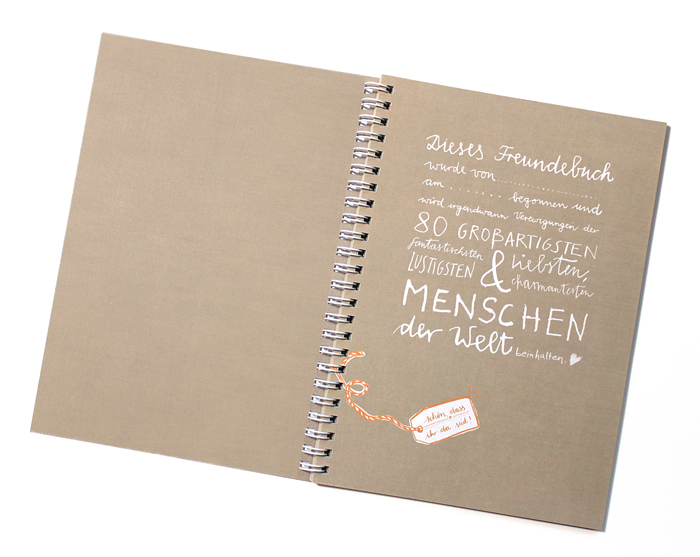 Dieses Freundebuch
wurde von ....................
am ........ begonnen und
wird irgendwann Verewigungen der
80 GROẞARTIGSTEN
fantastischsten & liebsten,
LUSTIGSTEN charmantesten
MENSCHEN
der Welt beinhalten.
schön, dass
ihr da seid!